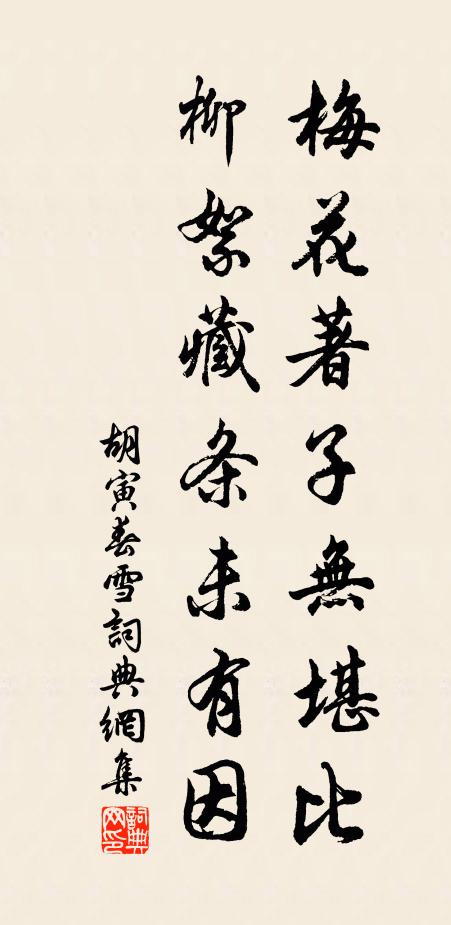 梅花著子無堪比
柳絮藏条未有因
胡寅春雪詞典網集
詞典网印